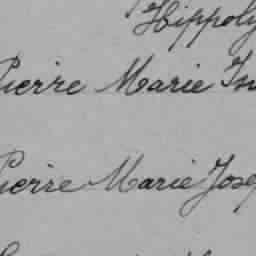 Hippoly
Pierre Marie
Pierre Marie Jose